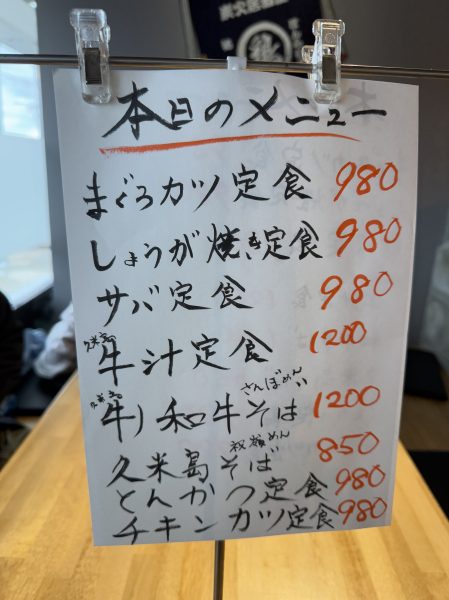 本日のメニュー
まぐろカツ定食 980
しょうが焼き定食 980
サバ定食 980
久米島
牛汁定食 1200
さんぽめん
和牛そば 1200
めん
久米島そば 850
とんかつ定食 980
チキンカツ定食 980